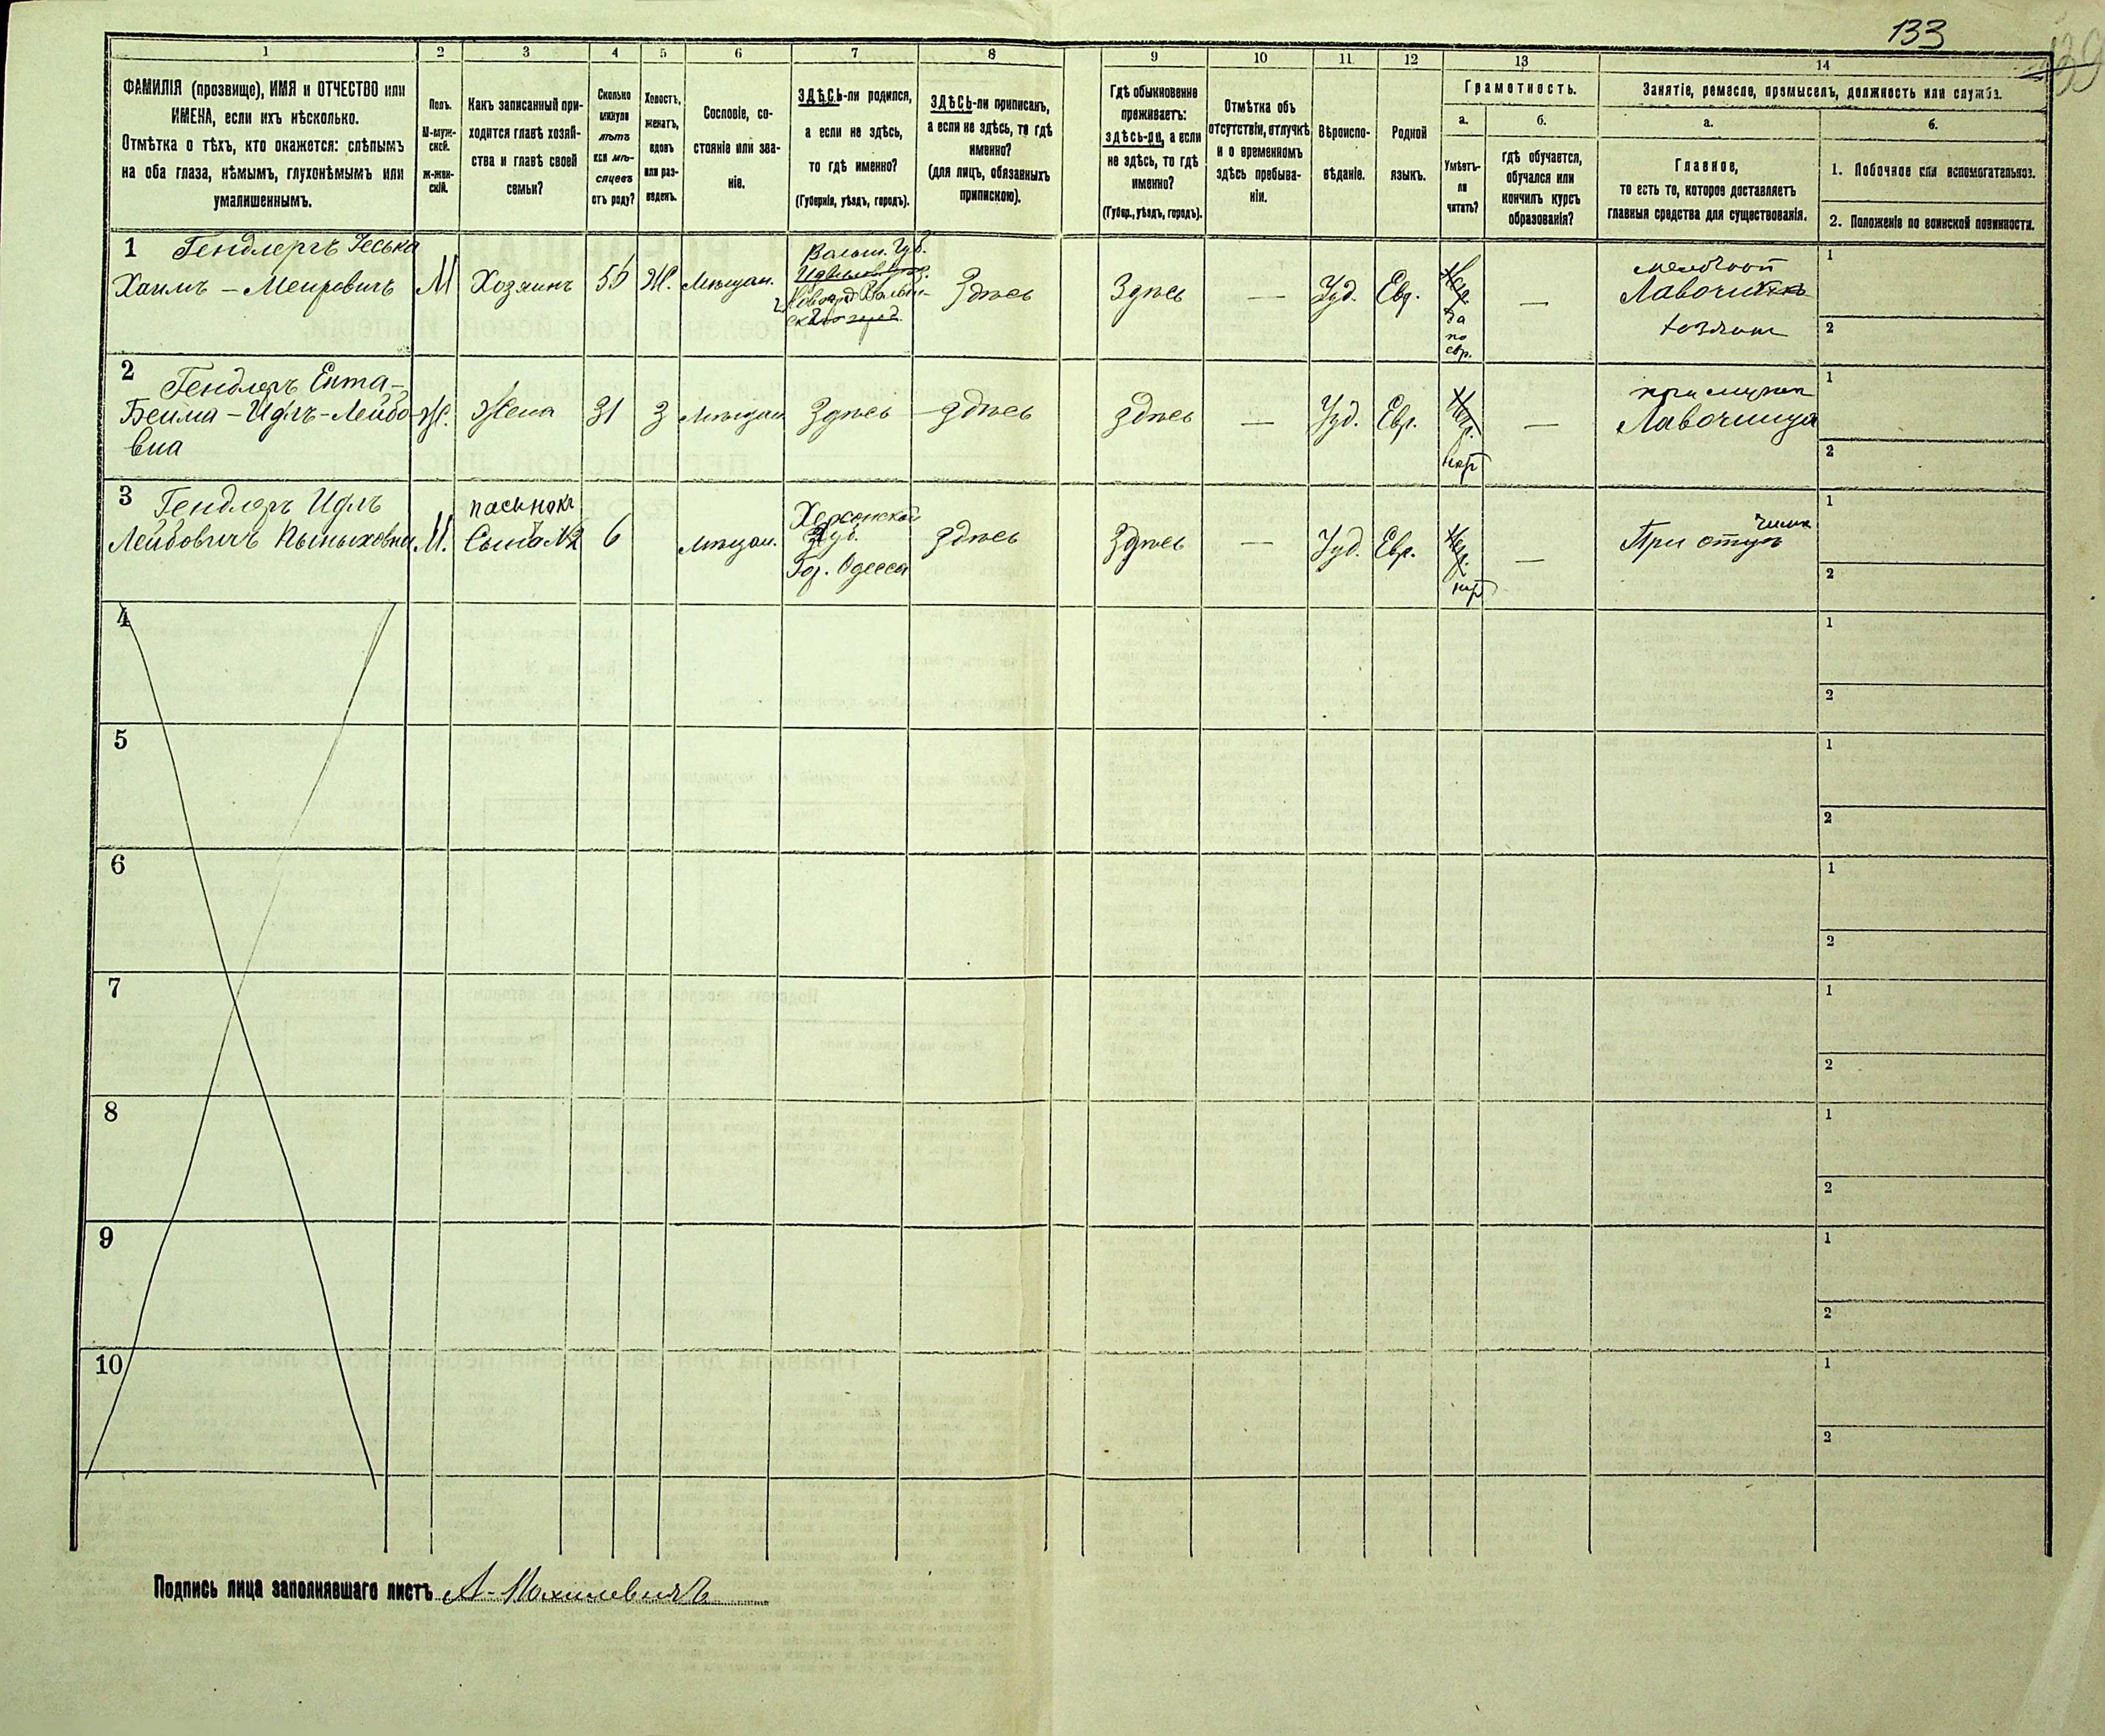 133
1
2
3
4
5
6
7
8
9
10
11
12
13
14
ФАМИЛІЯ (прозвище), ИМЯ и ОТЧЕСТВО или
ИМЕНА, если ихъ нѣсколько.
Отмѣтка о тѣхъ, кто окажется: слѣпымъ
на оба глаза, нѣмымъ, глухонѣмымъ или
умалишеннымъ.
Полъ.
М-муж-
ской.
Ж-жен-
скій.
Какъ записанный при-
ходится главѣ хозяй-
ства и главѣ своей
семьи?
Сколько
минуло
лѣтъ
или мѣ-
сяцевъ
отъ роду?
Холостъ,
женатъ,
вдовъ
или раз-
веденъ.
Сословіе, со-
стояніе или зва-
ніе.
ЗДѢСЬ-ли родился,
а если не здѣсь,
то гдѣ именно?
(Губернія, уѣздъ, городъ).
ЗДѢСЬ-ли приписанъ,
а если не здѣсь, то гдѣ
именно?
(для лицъ, обязанныхъ
припискою).
Гдѣ обыкновенно
проживаетъ:
здѣсь-ли, а если
не здѣсь, то гдѣ
именно?
(Губер., уѣздъ, городъ).
Отмѣтка объ
отсутствіи, отлучкѣ
и о временномъ
здѣсь пребыва-
ніи.
Вѣроиспо-
вѣданіе.
Родной
языкъ.
Грамотность.
а.
Умѣетъ-
ли
читать?
б.
гдѣ обучается,
обучался или
кончилъ курсъ
образованія?
Занятіе, ремесло, промыселъ, должность или служба.
а.
Главное,
то есть то, которое доставляетъ
главныя средства для существованія.
б.
1. Побочное или вспомогательное.
2. Положеніе по воинской повинности.
1 Гендлеръ Іеська
Хаимъ - Меировичъ М Хозяинъ 55 Ж. Мѣщан.
Волын. Губ.
Здѣсь Здѣсь — Іуд. Евр.
да
по
евр.
—
Лавочникъ
1
2
2 Гендлеръ Ента-
Бейла - Идлъ-Лейбо-
вна
Ж. Жена 31 З Мѣщан. Здѣсь Здѣсь Здѣсь — Іуд. Евр.
—
Лавочница
1
2
3 Гендлеръ Идлъ
Лейбовичъ
М.
пасынокъ
6 Мѣщан.
Херсонской
Губ.
Гор. Одесса
Здѣсь Здѣсь — Іуд. Евр.
—
При отцѣ
1
2
4
1
2
5
1
2
6
1
2
7
1
2
8
1
2
9
1
2
10
1
2
Подпись лица заполнявшаго листъ А-Мохилевичъ